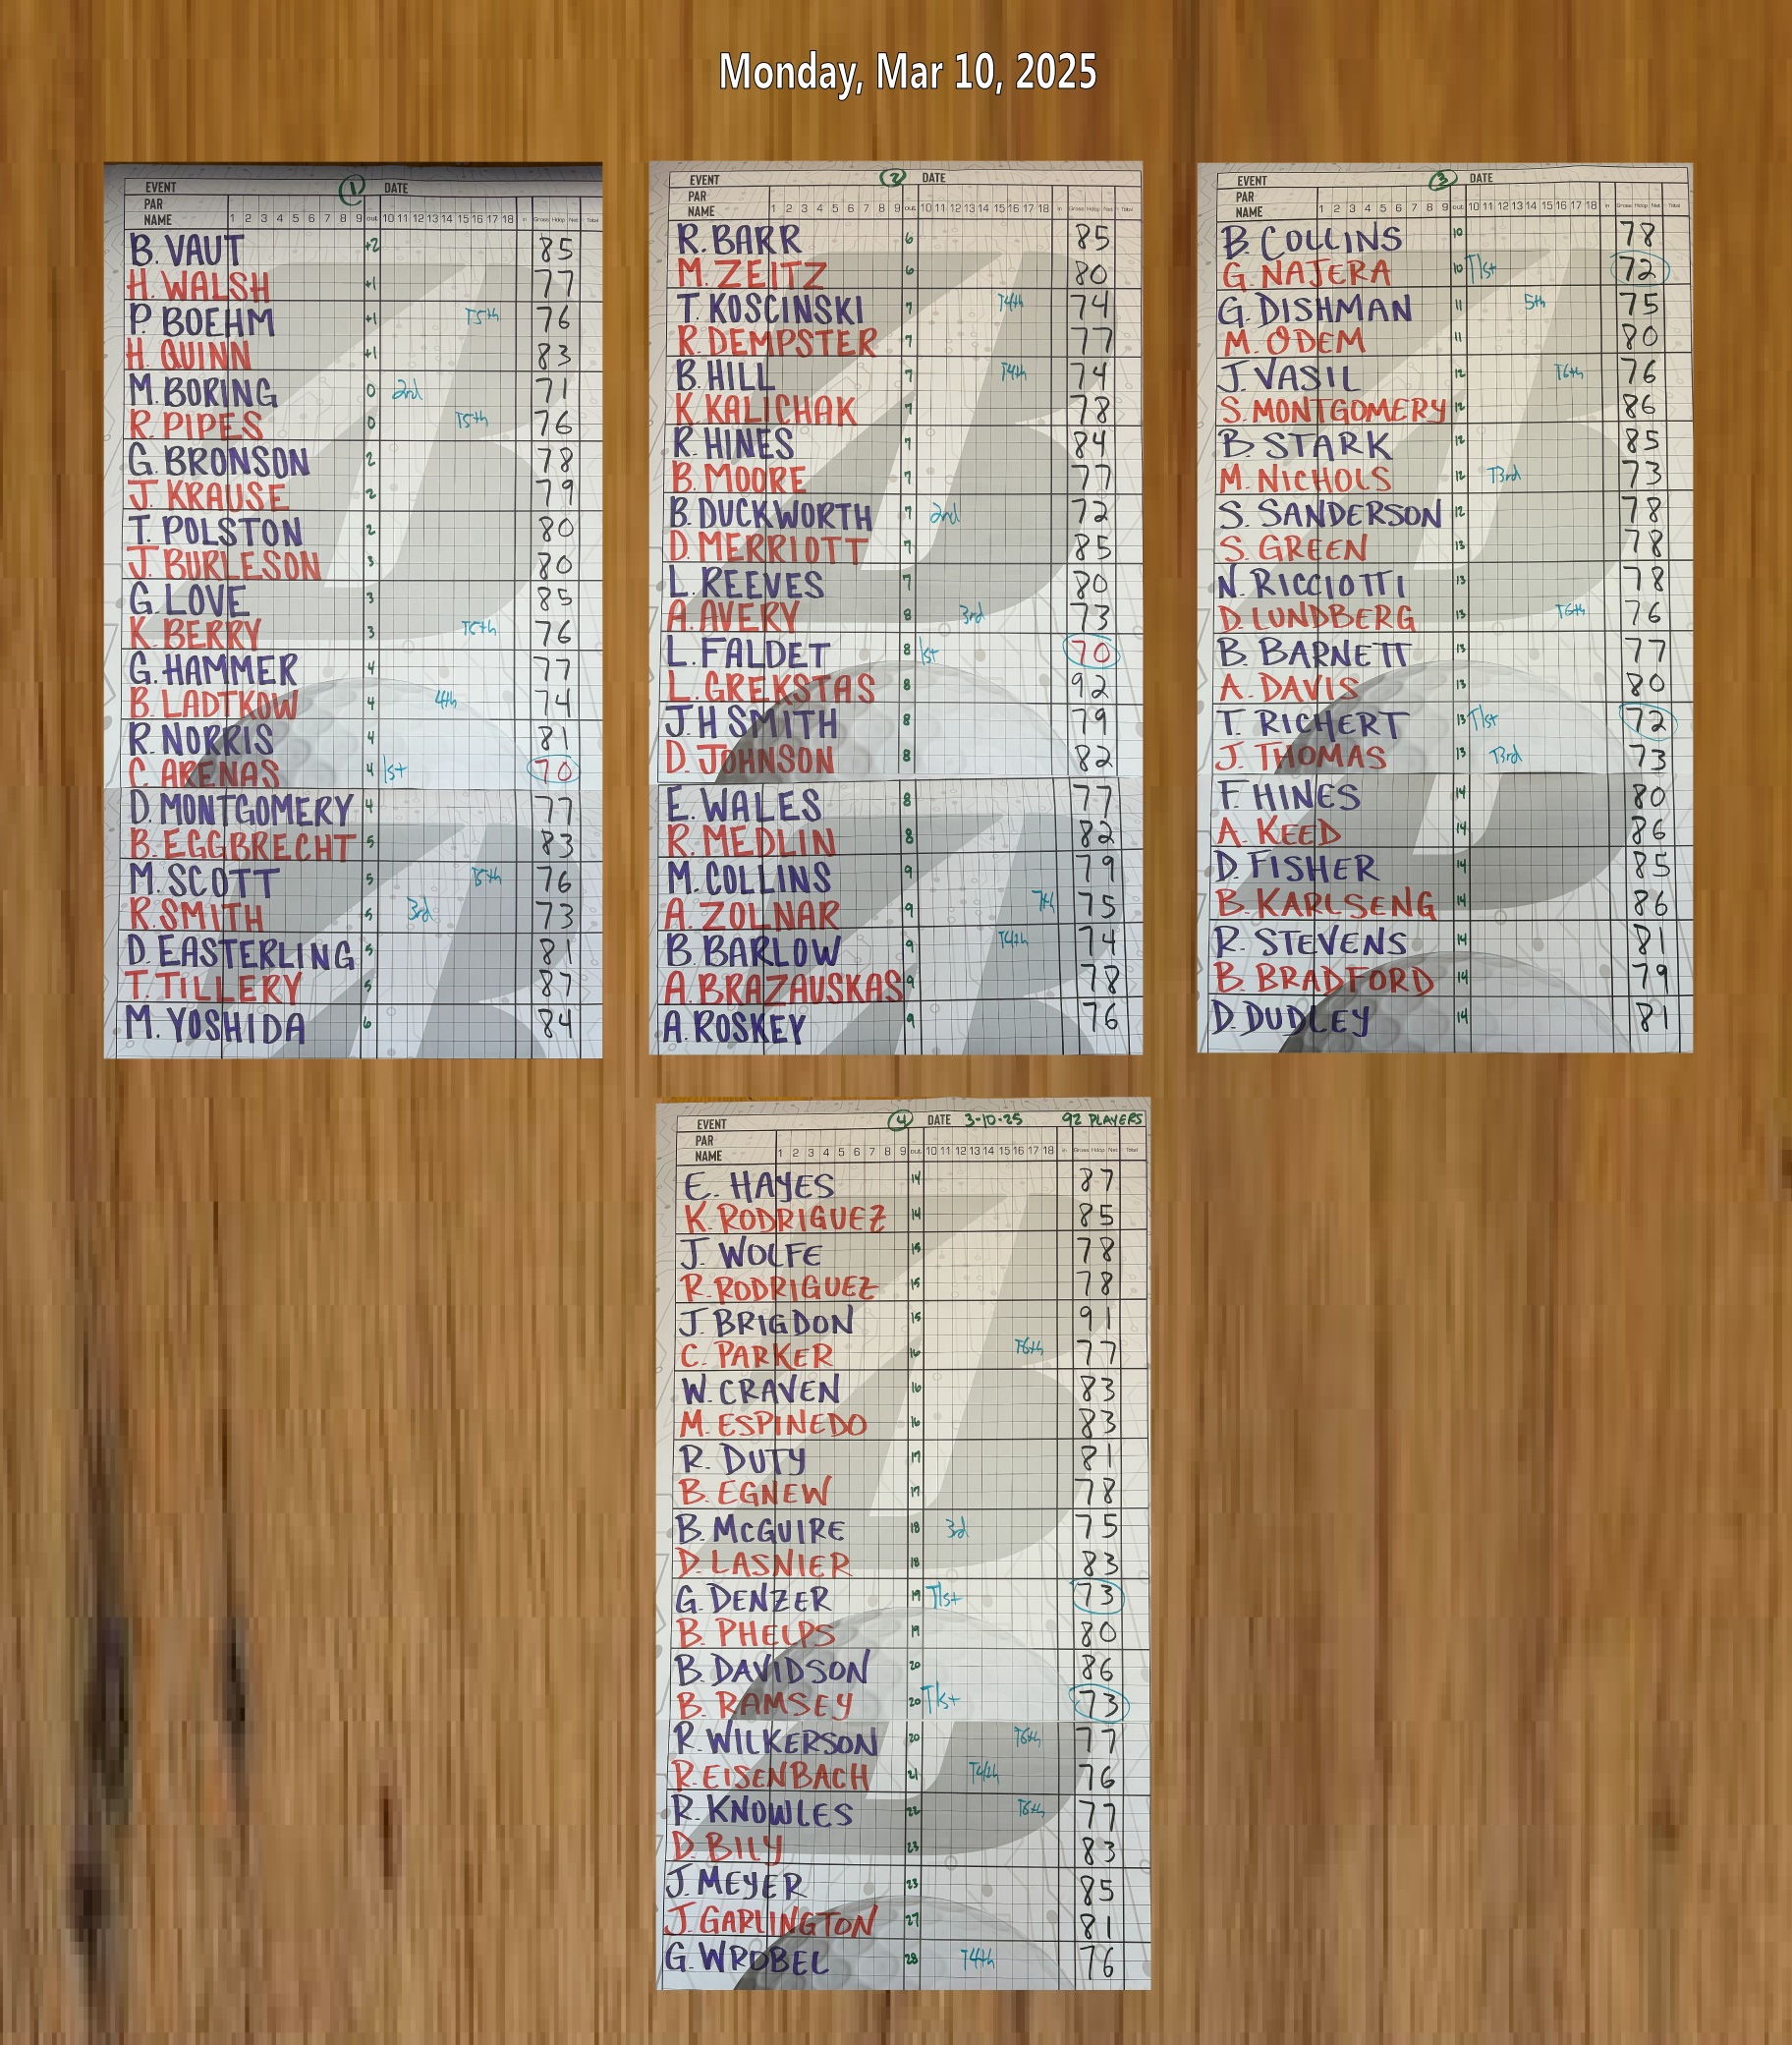 Monday, Mar 10, 2025
EVENT 1 DATE
PAR
NAME 1 2 3 4 5 6 7 8 9 out 10 11 12 13 14 15 16 17 18 in Gross Hdcp Net Total
B. VAUT +2 85
H. WALSH +1 77
P. BOEHM +1 T5th 76
H. QUINN +1 83
M. BORING 0 2nd 71
R. PIPES 0 T5th 76
G. BRONSON 2 78
J. KRAUSE 2 79
T. POLSTON 2 80
J. BURLESON 3 80
G. LOVE 3 85
K. BERRY 3 T5th 76
G. HAMMER 4 77
B. LADTKOW 4 4th 74
R. NORRIS 4 81
C. ARENAS 4 1st 70
D. MONTGOMERY 4 77
B. EGGBRECHT 5 83
M. SCOTT 5 T5th 76
R. SMITH 5 3rd 73
D. EASTERLING 5 81
T. TILLERY 5 87
M. YOSHIDA 6 84
EVENT 2 DATE
PAR
NAME 1 2 3 4 5 6 7 8 9 out 10 11 12 13 14 15 16 17 18 in Gross Hdcp Net Total
R. BARR 6 85
M. ZEITZ 6 80
T. KOSCINSKI 7 T4th 74
R. DEMPSTER 7 77
B. HILL 7 T4th 74
K. KALICHAK 7 78
R. HINES 7 84
B. MOORE 7 77
B. DUCKWORTH 7 2nd 72
D. MERRIOTT 7 85
L. REEVES 7 80
A. AVERY 8 3rd 73
L. FALDET 8 1st 70
L. GREKSTAS 8 92
J H SMITH 8 79
D. JOHNSON 8 82
E. WALES 8 77
R. MEDLIN 8 82
M. COLLINS 9 79
A. ZOLNAR 9 7th 75
B. BARLOW 9 T4th 74
A. BRAZAUSKAS 9 78
A. ROSKEY 9 76
EVENT 3 DATE
PAR
NAME 1 2 3 4 5 6 7 8 9 out 10 11 12 13 14 15 16 17 18 in Gross Hdcp Net Total
B. COLLINS 10 78
G. NAJERA 10 T1st 72
G. DISHMAN 11 5th 75
M. ODEM 11 80
J. VASIL 12 T6th 76
S. MONTGOMERY 12 86
B. STARK 12 85
M. NICHOLS 12 T3rd 73
S. SANDERSON 12 78
S. GREEN 13 78
N. RICCIOTTI 13 78
D. LUNDBERG 13 T6th 76
B. BARNETT 13 77
A. DAVIS 13 80
T. RICHERT 13 T1st 72
J. THOMAS 13 T3rd 73
F. HINES 14 80
A. KEED 14 86
D. FISHER 14 85
B. KARLSENG 14 86
R. STEVENS 14 81
B. BRADFORD 14 79
D. DUDLEY 14 81
EVENT 4 DATE 3-10-25 92 PLAYERS
PAR
NAME 1 2 3 4 5 6 7 8 9 out 10 11 12 13 14 15 16 17 18 in Gross Hdcp Net Total
E. HAYES 14 87
K. RODRIGUEZ 14 85
J. WOLFE 15 78
R. RODRIGUEZ 15 78
J. BRIGDON 15 91
C. PARKER 16 T6th 77
W. CRAVEN 16 83
M. ESPINEDO 16 83
R. DUTY 17 81
B. EGNEW 17 78
B. McGUIRE 18 3d 75
D. LASNIER 18 83
G. DENZER 19 T1st 73
B. PHELPS 19 80
B. DAVIDSON 20 86
B. RAMSEY 20 T1st 73
R. WILKERSON 20 T6th 77
R. EISENBACH 21 T4th 76
R. KNOWLES 22 T6th 77
D. BILY 23 83
J. MEYER 23 85
J. GARLINGTON 27 81
G. WROBEL 28 T4th 76